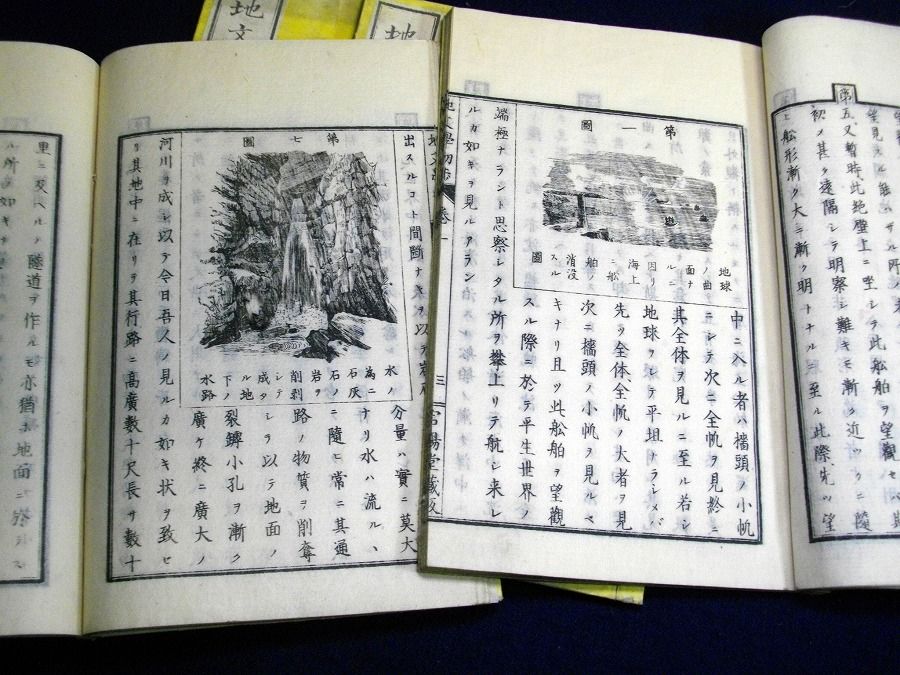 地文
地
第五
初メ甚タ遠隔シテ明察シ難キモ漸ク近ツクニ隨
ヒ船形漸ク大ニ漸ク明トナルニ至ル此際先ツ望
第一圖
地球
ノ曲
面ナ
ルニ
因リ
海上
ニ船
舶ノ
消沒
スル
圖
中ニ入ル者ハ檣頭ノ小帆
ニシテ次ニ全帆ヲ見終ニ
其全体ヲ見ルニ至ル若シ
地球ヲシテ平坦ナラシメバ
先ツ全体全帆ノ大者ヲ見
次ニ檣頭ノ小帆ヲ見ルベ
キナリ且ツ此船舶ヲ望觀
スル際ニ於テ平生世界ノ
端極ナラント思察シタル所ヲ攀上リテ航シ来レ
ルカ如キヲ見ルアラン
三
出スルコト間斷ナキヲ以テ
第七圖
水ノ
為ニ
石灰
石ノ
岩ヲ
削剥
シテ
成タ
ル地
下ノ
水路
分量ハ實ニ莫大
ナリ水ハ流ルヽ
ニ隨ヒ常ニ其通
路ノ物質ヲ削奪
シテ以テ地面ノ
裂罅小孔ヲ漸ク
廣ケ終ニ廣大ノ
河川ヲ成シ以テ今日吾人ノ見ルカ如キ状ヲ致セ
リ其地中ニ在リヲ其行路ニ高廣數十尺長サ數十